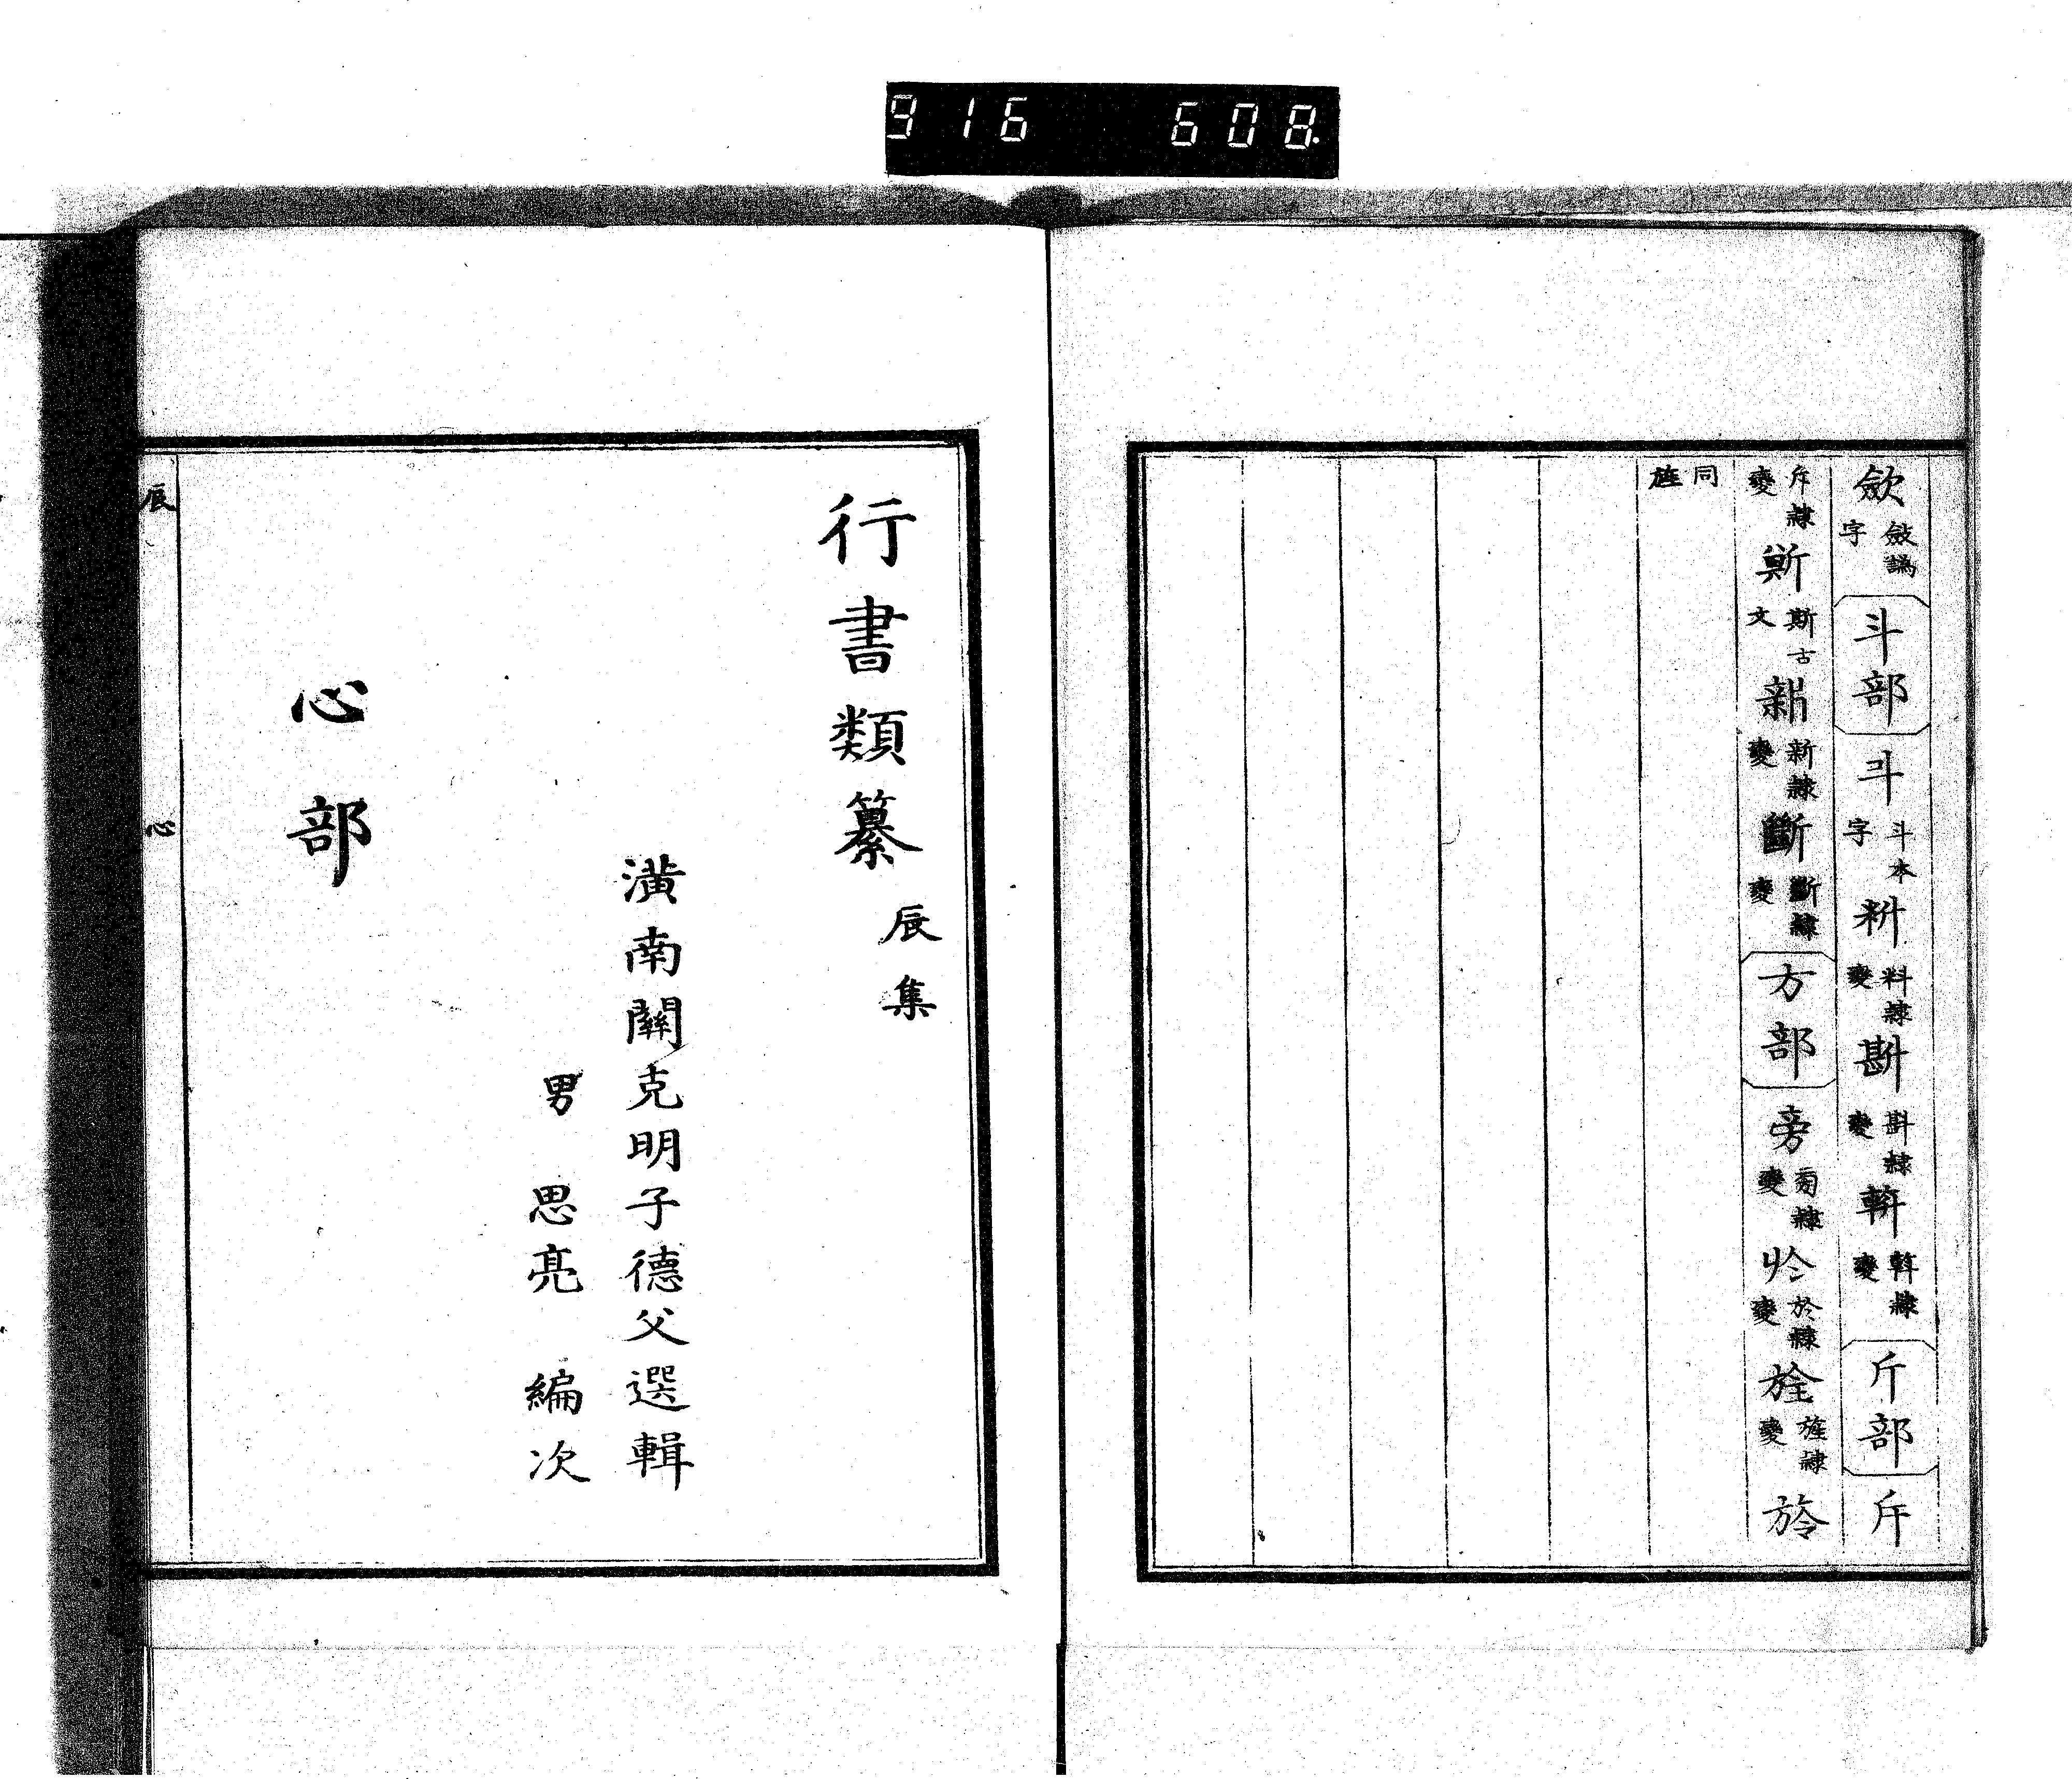 916 608
歛 斂譌字 斗部 㪷 斗本字 䉼 料隸變 斟 斟隸變 斡 斡隸變 斤部 斥
斥隸變 斯古文 新隸變 斷 斷隸變 方部 旁 㫄隸變 扵 於隸變 旌隸變 旍
同旌
行書類纂 辰集
潢南關克明子德父選輯
男 思亮 編次
心部
辰 心